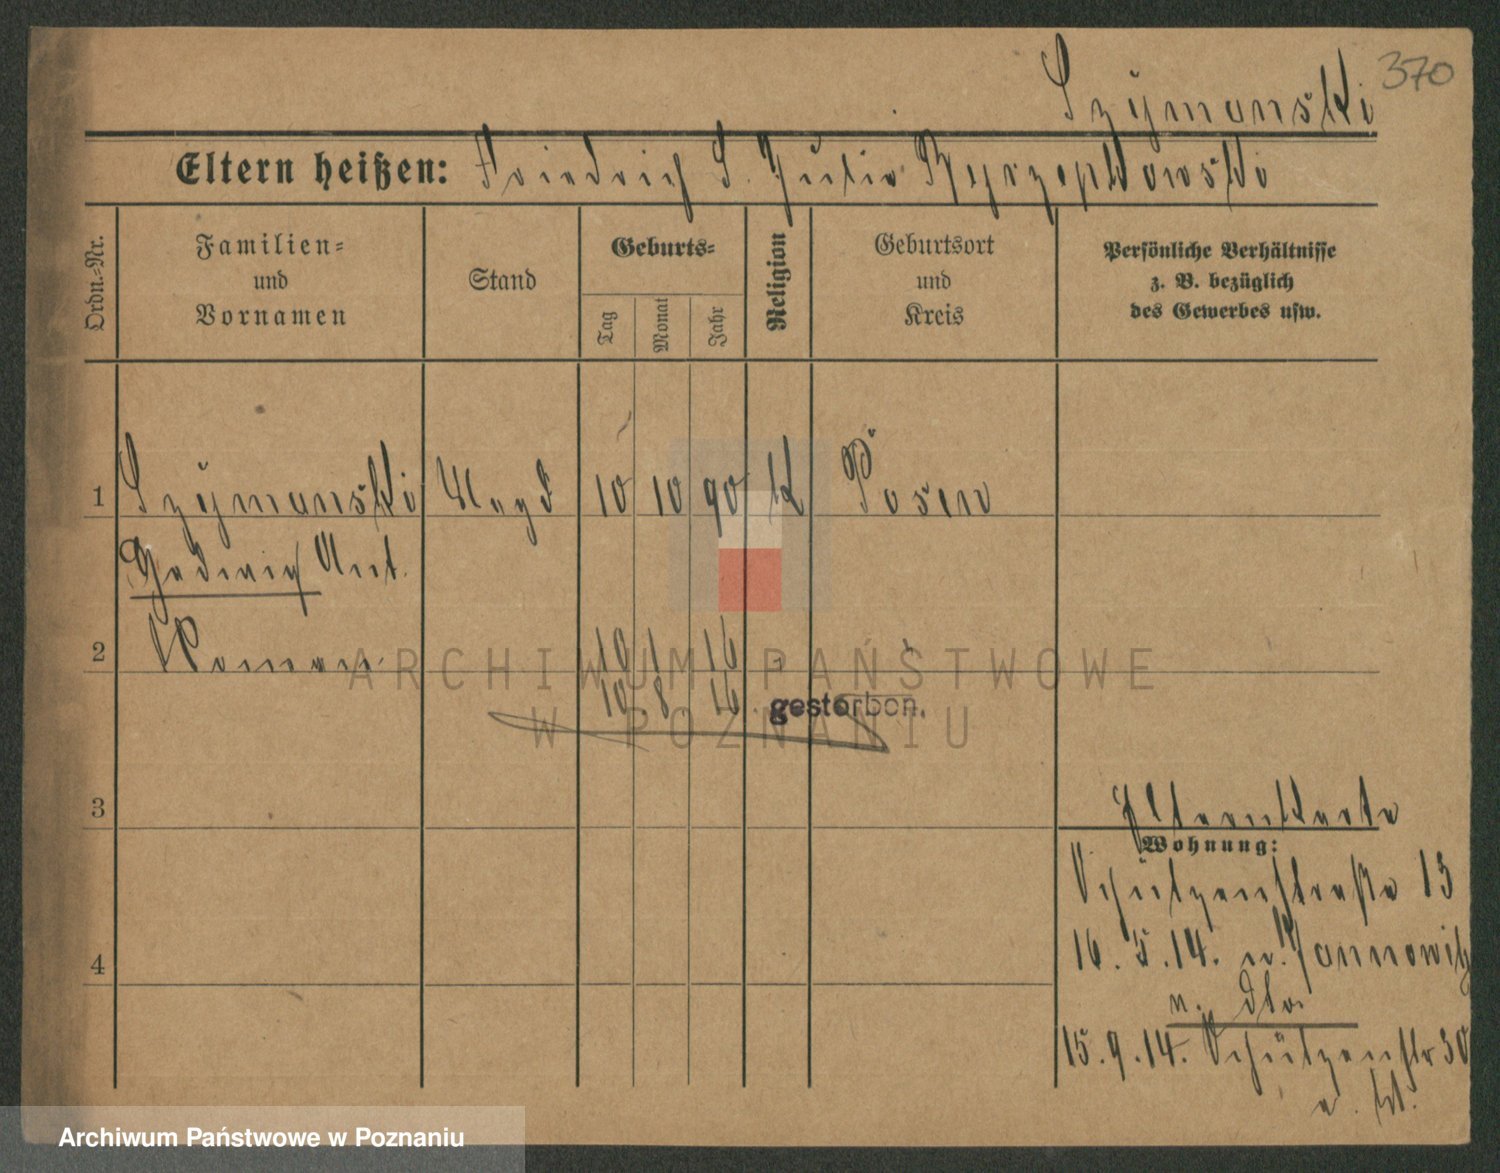 370
Szÿmanski
Eltern heißen: Friedrich S. Julie
Ordn.-Nr.
Familien- und Vornamen
Stand
Geburts-
Tag
Monat
Jahr
Religion
Geburtsort und Kreis
Persönliche Verhältnisse z. B. bezüglich des Gewerbes usw.
1 Szÿmanski Magd 10 10 90 K Posen
Hedwig Ant.
2 Roman 10 1 16
10. 8 16 gestorben.
3
Elternkarte
Wohnung:
Schützenstraße 13
4
16. 5. 14. n. Jannowitz
n. dto.
15. 9. 14. Schützenstr 30
ARCHIWUM PAŃSTWOWE
W POZNANIU
Archiwum Państwowe w Poznaniu